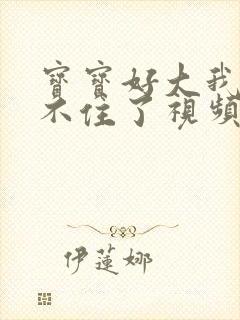 寶寶好大我
不住了視頻
伊蓮娜